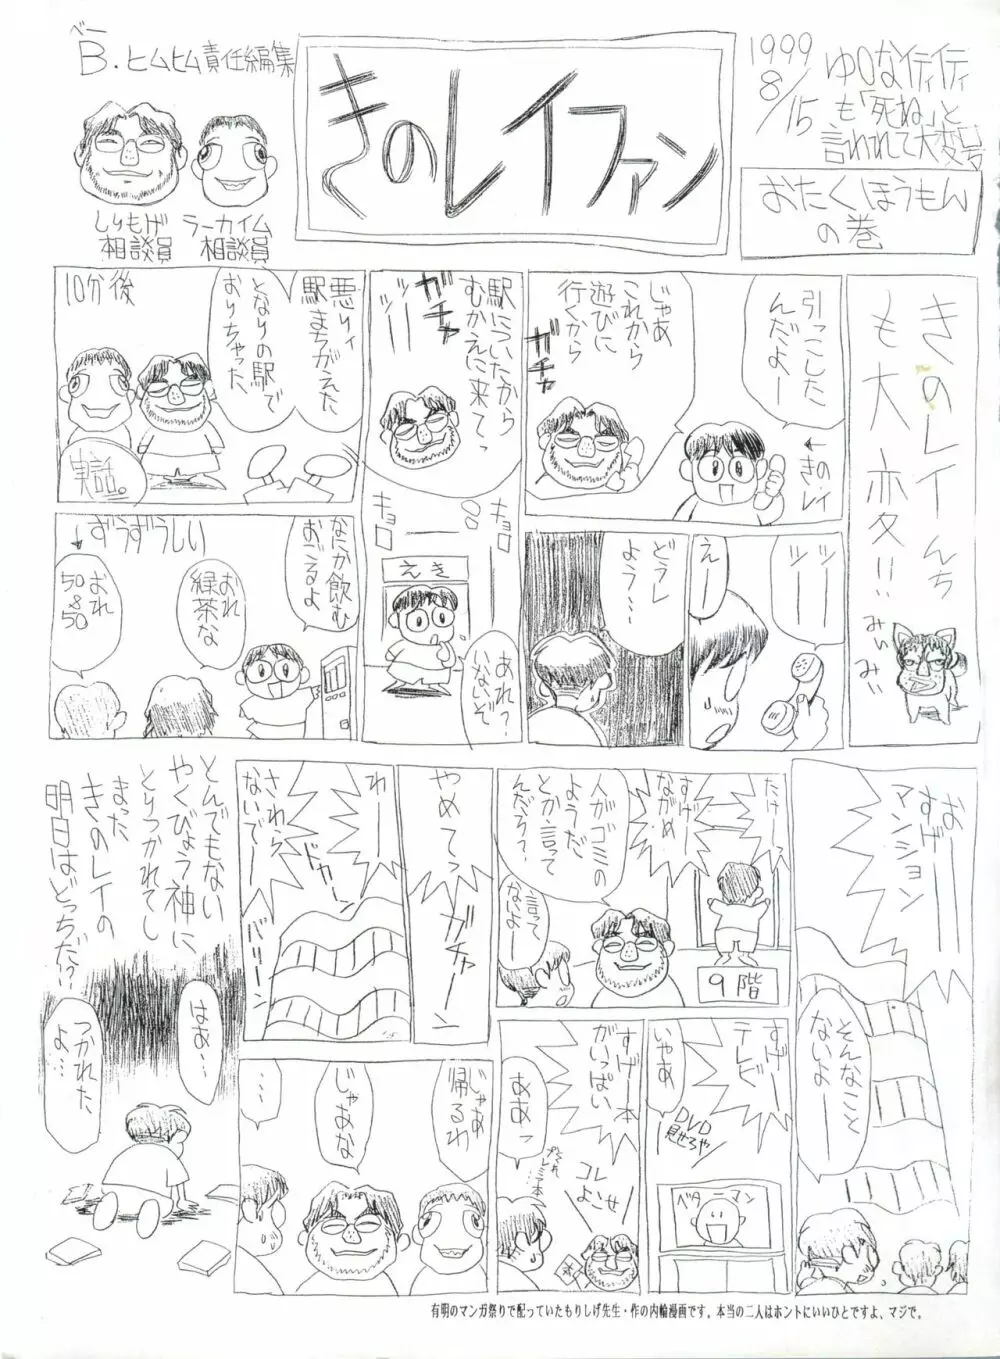 ベー
B.ヒムヒム責任編集
しりもげ
相談員
ラーカイム
相談員
きのレイファン
1999
8/15
ゆりな行ティ行ティ
も「死ね」と
言われて大変号
おたくほうもん
の巻
きのレイんち
も大変!!
みぃみぃ
引っこした
んだよー
←きのレイ
じゃあ
これから
遊びに
行くから
ガチャ
ツーツー
えー
どうしよう…
駅についたから
むかえに来てっ
ガチャ
ツーツー
キョロ
キョロ
えき
あれ?
いないぞ
悪りィ
駅まちがえた
となりの駅で
おりちゃった
10分後
実話。
なんか飲む
おごるよ
おれ
緑茶な
おれ
50&50
ずうずうしい
おー
すげー
マンション
そんなこと
ないよー
たけー
すげー
ながめ
人がゴミの
ようだ
とか言って
んだろ?
言って
ないよー
9階
すげー
テレビ
いやあ
DVD
見せろや
ベターマン
すげー本
がいっぱい
ああっ
コレ
よこせ
やめてっ
ガチャーン
わー
さわら
ないでー
ドカーン
バリーン
じゃあ
帰るわ
じゃあな
…
とんでもない
やくびょう神に
とりつかれてし
まった
きのレイの
明日はどっちだ!?
はあ…
つかれた
よ…
有明のマンガ祭りで配っていたもりしげ先生・作の内輪漫画です。本当の二人はホントにいいひとですよ、マジで。